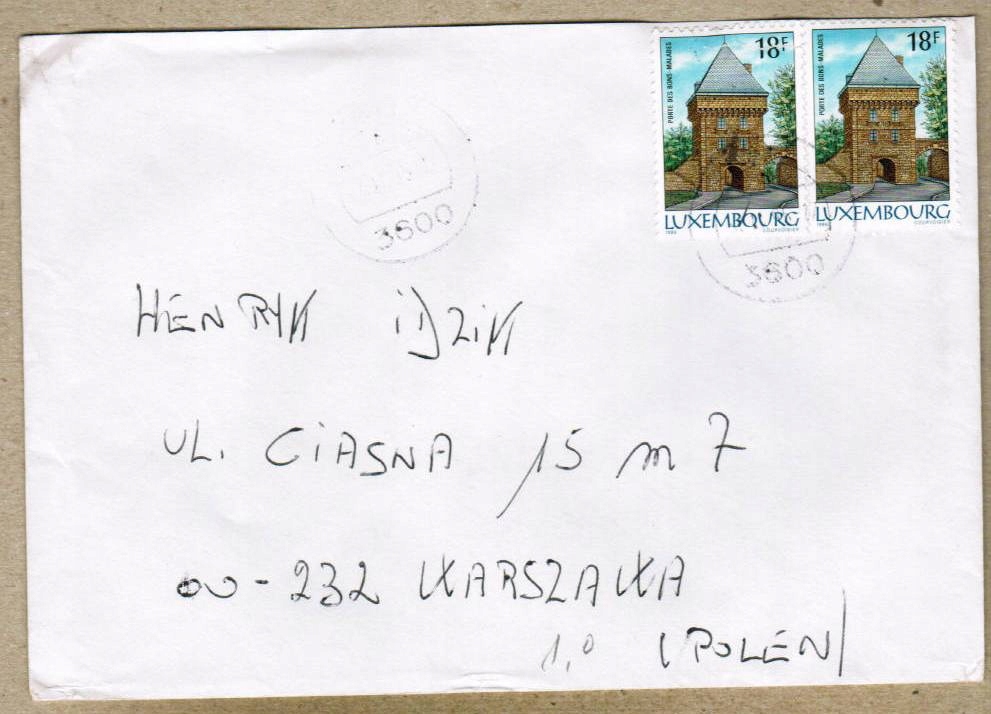 PORTE DES BONS-MALADES 18F
LUXEMBOURG
1986 COURVOISIER
PORTE DES BONS-MALADES 18F
LUXEMBOURG
1986 COURVOISIER
3600
3600
HENRYK iDZiK
UL. CiASNA 15 m 7
00-232 WARSZAWA
(POLEN)